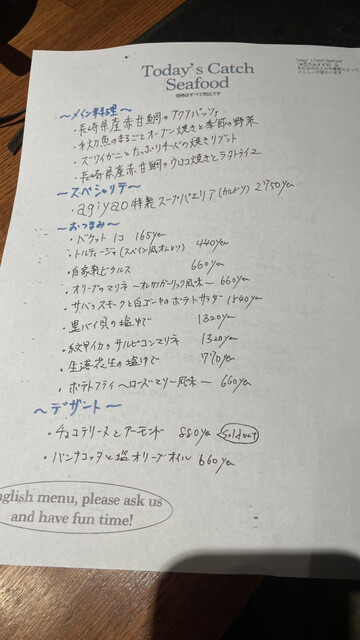 Today's Catch
Seafood
価格はすべて税込です
Today's Catch Seafood
〜メイン料理〜
・長崎県産赤甘鯛のアクアパッツァ
・太刀魚のまるごとオーブン焼きと季節の野菜
・ズワイガニとたっぷりチーズの焼きリゾット
・長崎県産赤甘鯛のウロコ焼きとラタトゥイユ
〜スペシャリテ〜
・agiyao特製スープパエリア(カルドソ) 2750yen
〜おつまみ〜
・バケット 1コ 165yen
・トルティージャ(スペイン風オムレツ) 440yen
・自家製ピクルス 660yen
・オリーブのマリネ〜オレガノガーリック風味〜 660yen
・サバのスモークと白ゴーヤのポテトサラダ
・黒バイ貝の塩ゆで 1320yen
・紋甲イカのサルピコンマリネ 1320yen
・生落花生の塩ゆで 770yen
・ポテトフライ〜ローズマリー風味〜 660yen
〜デザート〜
・チョコテリーヌとアーモンド 880yen Sold out
・パンナコッタと塩オリーブオイル 660yen
nglish menu, please ask us
and have fun time!